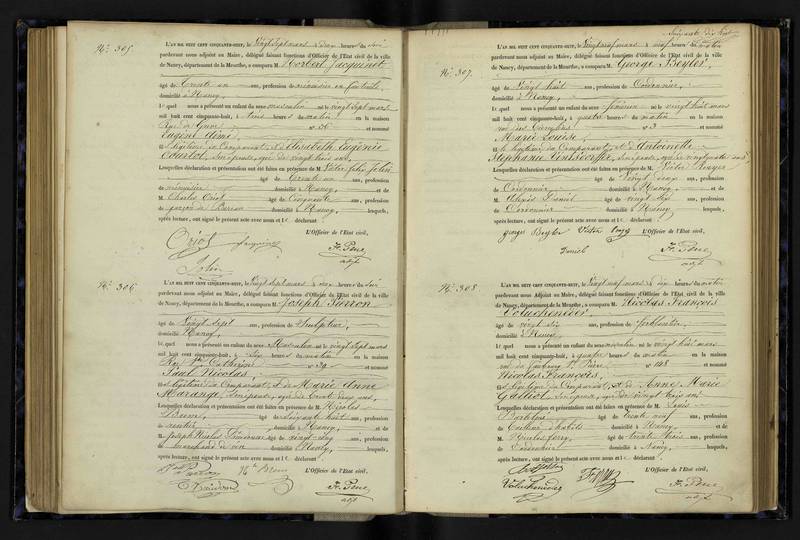 N.º 305.
L'AN MIL HUIT CENT CINQUANTE-HUIT, le Vingt sept mars à deux heures du soir
pardevant nous adjoint au Maire, délégué faisant fonctions d'Officier de l'Etat civil de la ville
de Nancy, département de la Meurthe, a comparu M. Norbert Jacquinet
âgé de trente un ans, profession de
domicilié à Nancy,
lequel nous a présenté un enfant du sexe masculin né le vingt sept mars
mil huit cent cinquante-huit, à trois heures du matin en la maison
Rue de Grève n.º 36 et nommé
Eugène Aimé,
fils légitime du Comparant, et d'Elisabeth Eugénie
Courtot, son épouse, âgée de vingt huit ans,
Lesquelles déclaration et présentation ont été faites en présence de M. Victor Félix Jolin
âgé de trente un ans, profession
de domicilié à Nancy, et de
M. Charles Oriot âgé de Cinquante ans, profession
de garçon de Bureau domicilié à Nancy, lesquels,
après lecture, ont signé le présent acte avec nous et le déclarant
L'Officier de l'Etat civil,
Oriot Jacquinet
Jolin
adjt
N.º 306
L'AN MIL HUIT CENT CINQUANTE-HUIT, le Vingt sept mars à deux heures du soir
pardevant nous adjoint au Maire, délégué faisant fonctions d'Officier de l'Etat civil de la ville
de Nancy, département de la Meurthe, a comparu M. Joseph Pierron
âgé de Vingt sept ans, profession de Sculpteur,
domicilié à Nancy,
lequel nous a présenté un enfant du sexe Masculin né le vingt sept mars
mil huit cent cinquante-huit, à six heures du matin en la maison
Rue Ste Catherine n.º 39 et nommé
Paul Nicolas,
fils légitime du Comparant, et de Marie Anne
Marange, son épouse, âgée de trente deux ans,
Lesquelles déclaration et présentation ont été faites en présence de M. Nicolas
âgé de Soixante huit ans, profession
de rentier domicilié à Nancy, et de
M. Joseph Nicolas âgé de vingt cinq ans, profession
de marchand de vin domicilié à Nancy, lesquels,
après lecture, ont signé le présent acte avec nous et le déclarant
L'Officier de l'Etat civil,
adjt
Soixante dix huit
N.º 307.
L'AN MIL HUIT CENT CINQUANTE-HUIT, le Vingt neuf mars à neuf heures du matin
pardevant nous adjoint au Maire, délégué faisant fonctions d'Officier de l'Etat civil de la ville
de Nancy, département de la Meurthe, a comparu M. George Beyler,
âgé de Vingt huit ans, profession de Cordonnier,
domicilié à Nancy,
lequel nous a présenté un enfant du sexe féminin né le vingt huit mars
mil huit cent cinquante-huit, à quatre heures du matin en la maison
n.º 3 et nommé
Marie Louise,
fille légitime du Comparant, et d'Antoinette
Stéphanie son épouse, âgée de vingt ans
Lesquelles déclaration et présentation ont été faites en présence de M. Victor
âgé de Vingt deux ans, profession
de Cordonnier domicilié à Nancy, et de
M. Alexis Daniel âgé de vingt six ans, profession
de Cordonnier domicilié à Nancy lesquels,
après lecture, ont signé le présent acte avec nous et le déclarant
L'Officier de l'Etat civil,
georges Beyler Victor
Daniel
adjt
N.º 308
L'AN MIL HUIT CENT CINQUANTE-HUIT, le Vingt neuf mars à dix heures du matin
pardevant nous Adjoint au Maire, délégué faisant fonctions d'Officier de l'Etat civil de la ville
de Nancy, département de la Meurthe, a comparu M. Nicolas François
âgé de vingt six ans, profession de ferblantier,
domicilié à Nancy,
lequel nous a présenté un enfant du sexe masculin né le vingt huit mars
mil huit cent cinquante-huit, à quatre heures du matin en la maison
rue du faubourg St Pierre n.º 148 et nommé
Nicolas François,
fils légitime du Comparant, et de Anne Marie
son épouse, âgée de vingt trois ans
Lesquelles déclaration et présentation ont été faites en présence de M. Louis
âgé de trente neuf ans, profession
de Tailleur d'habits domicilié à Nancy, et de
M. Nicolas Ferry, âgé de trente trois ans, profession
de domicilié à Nancy, lesquels,
après lecture, ont signé le présent acte avec nous et le déclarant
L'Officier de l'Etat civil,
adjt